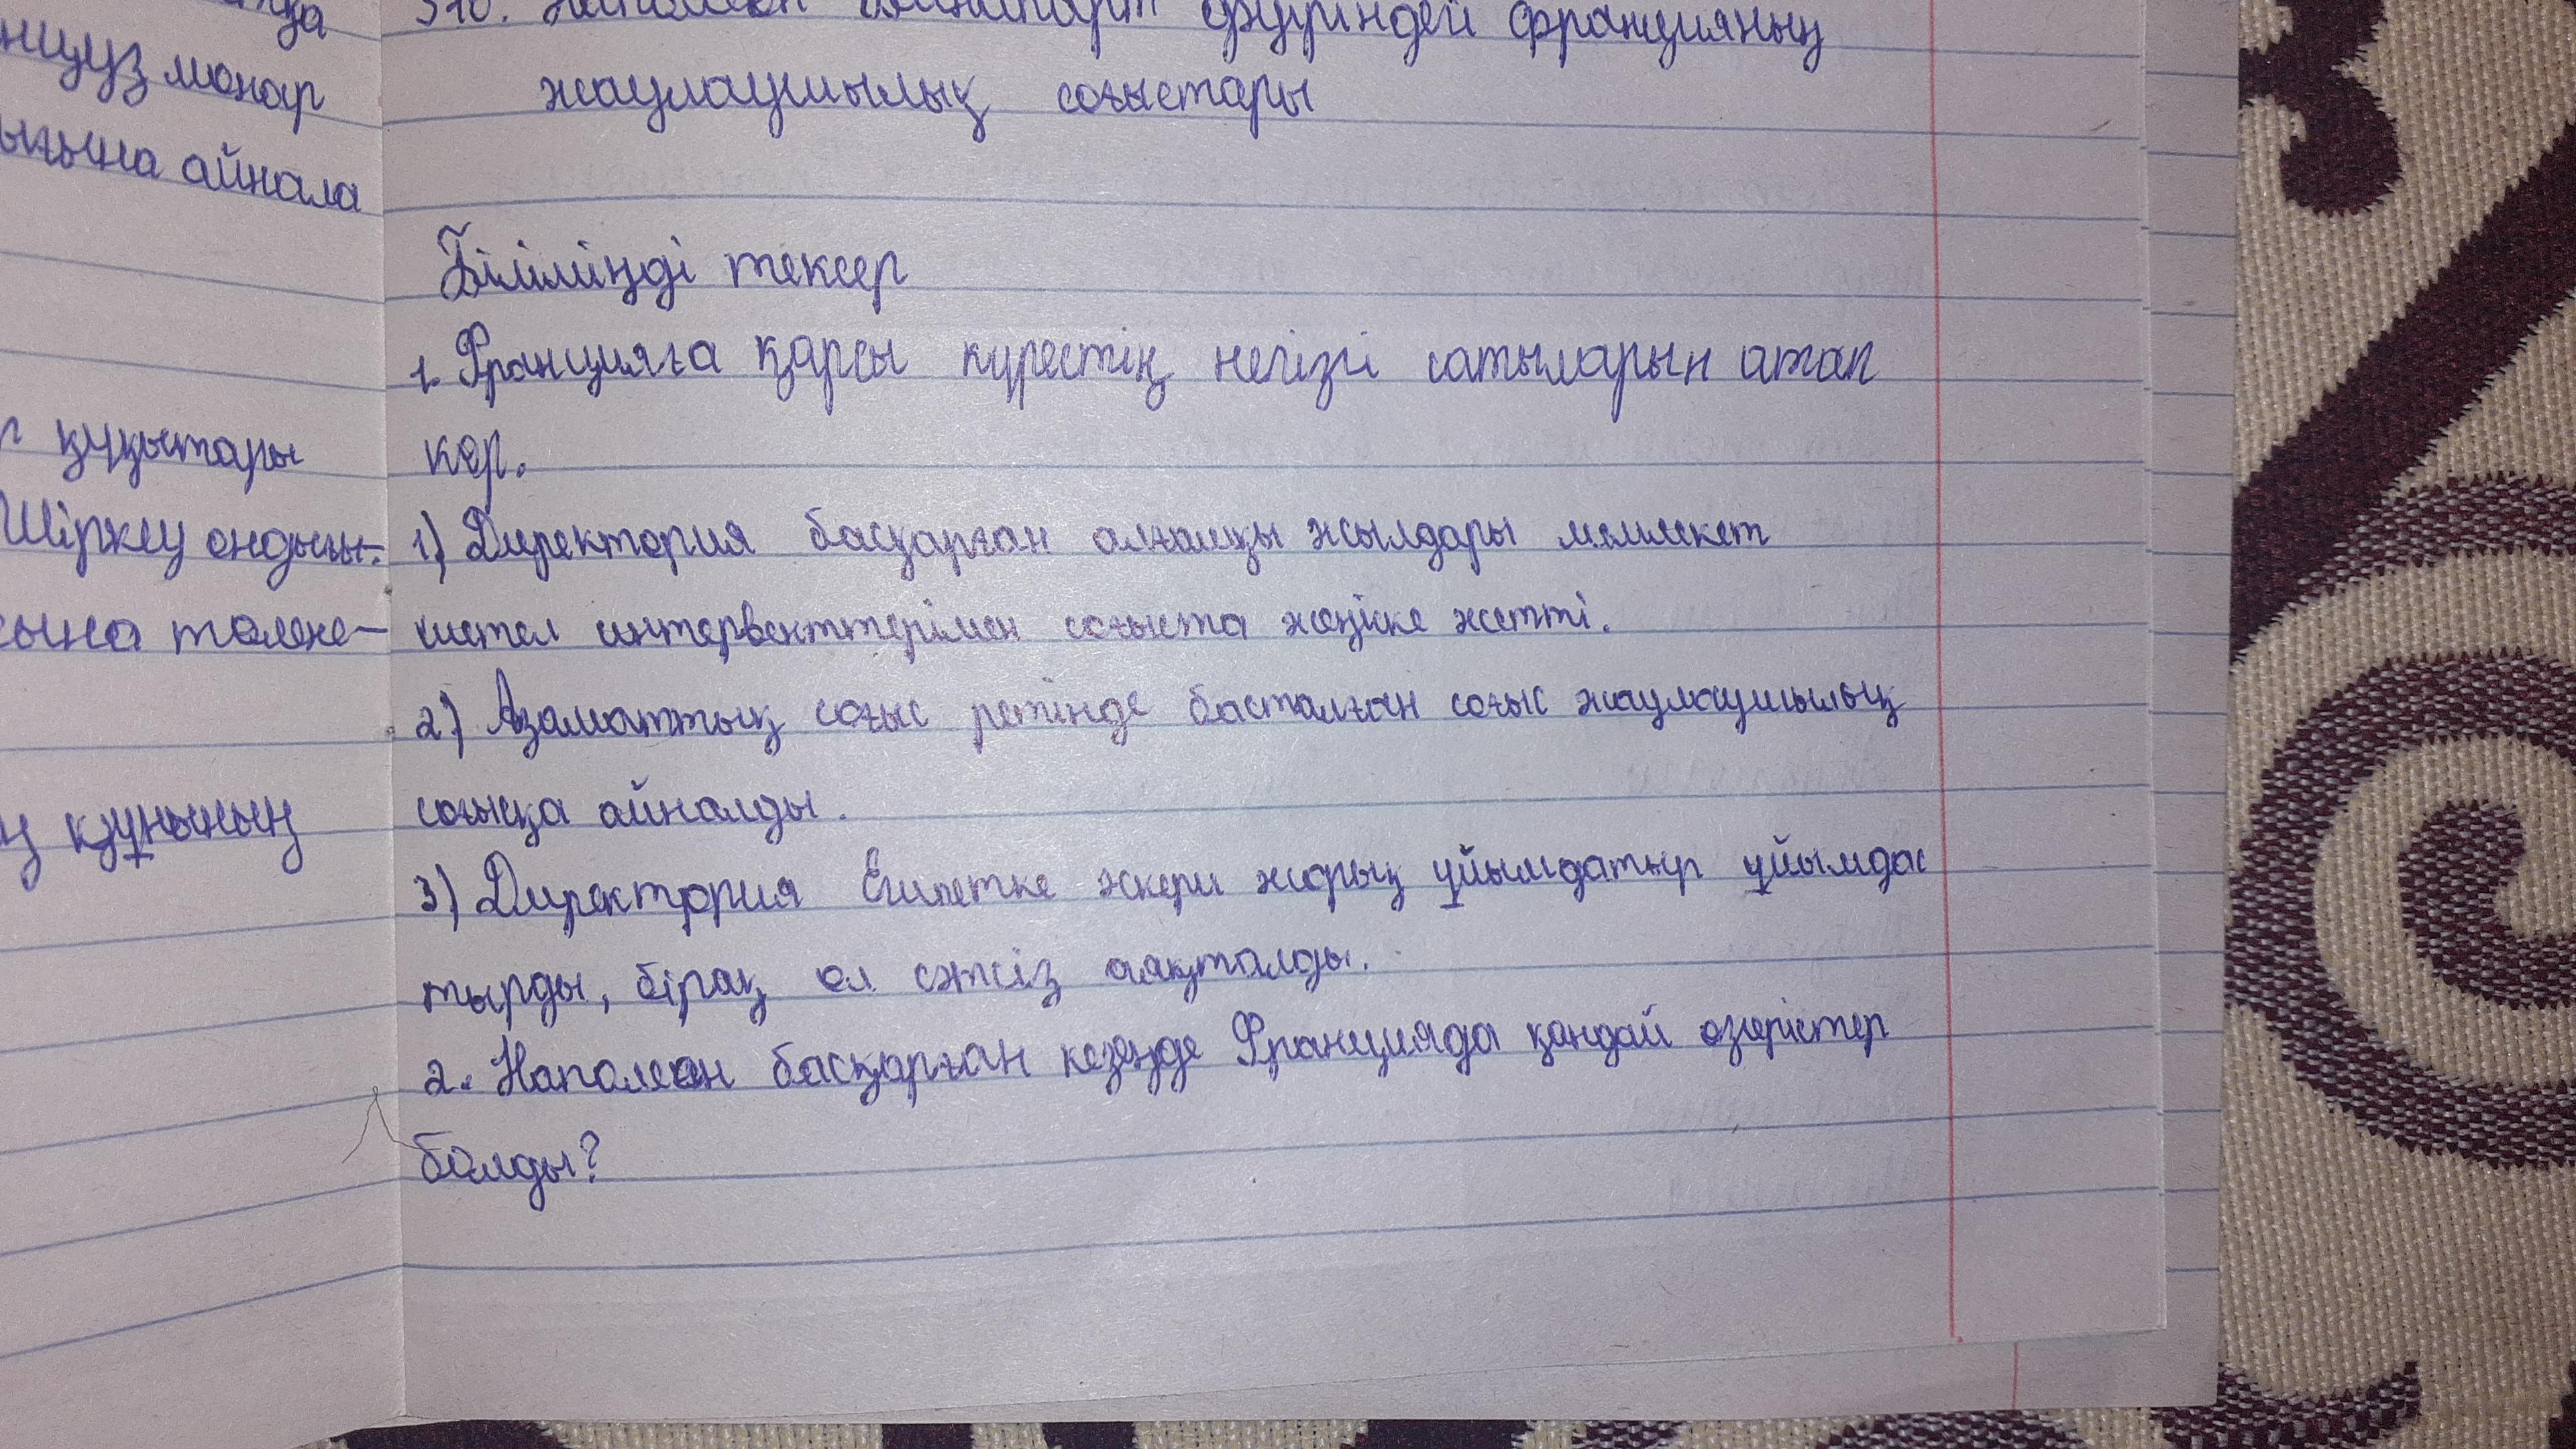 нда
нцуз монар
ығына айнала
құқықтары
Шіркеу ондығы-
сына төлене-
құнының
§10. Наполеон Бонапарт дәуіріндей францияның
жаулаушылық соғыстары
Біліміңді тексер
1. Францияға қарсы күрестің негізгі сатыларын атап
көр.
1) Директория басқарған алғашқы жылдары мемлекет
шетел интервенттерімен соғыста жеңіске жетті.
2) Азаматтық соғыс ретінде басталған соғыс жаулаушылық
соғысқа айналды.
3) Директория Египетке әскери жорық ұйымдатыр ұйымдас
тырды, бірақ ол сәтсіз аяқталды.
2. Наполеон басқарған кезеңде Францияда қандай өзгерістер
болды?